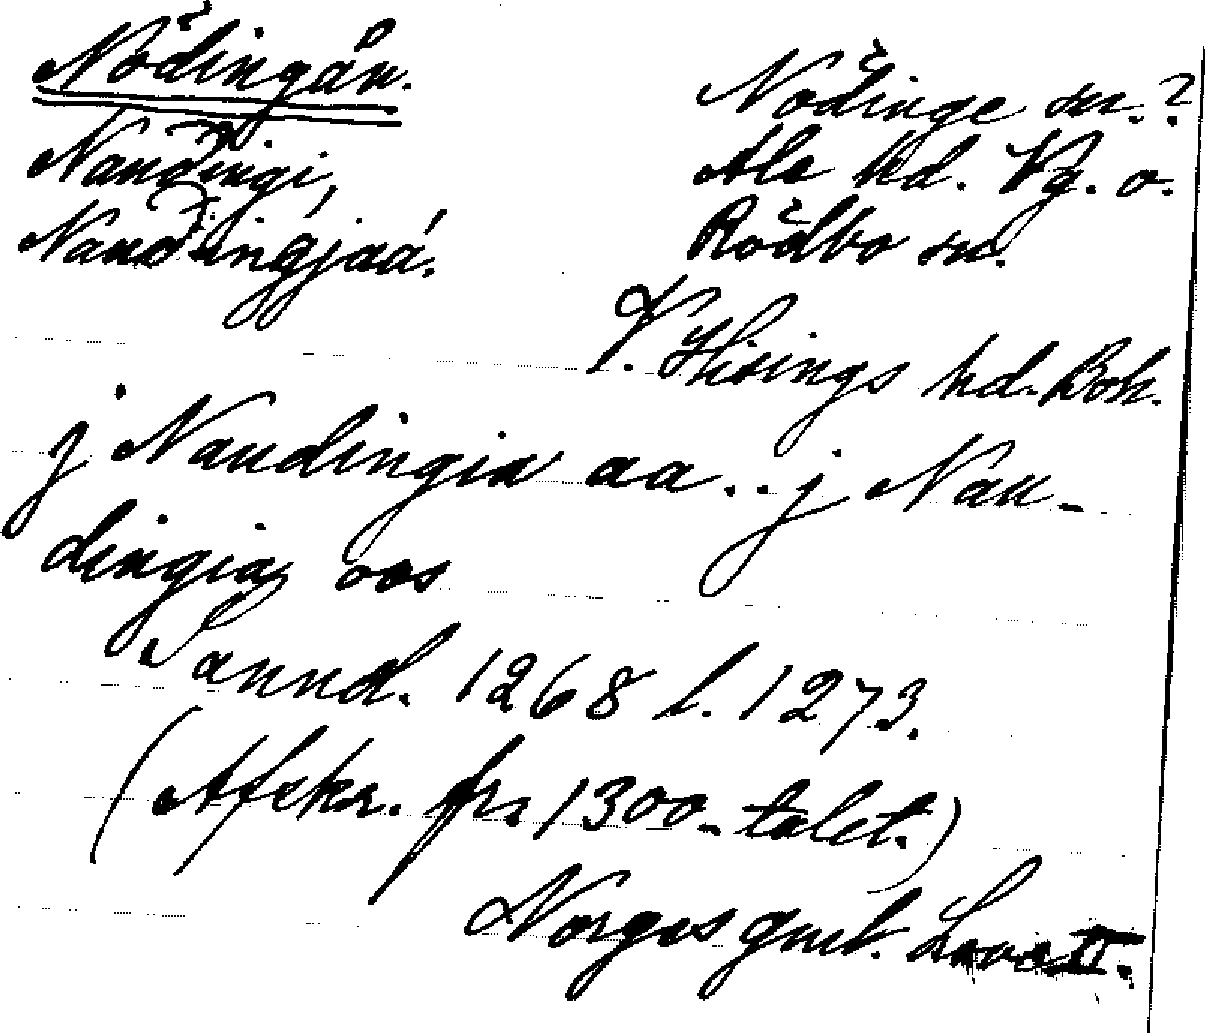 Nödingån.
Naudingi,
Naudingjaá.
Nödinge sn.?
Ale hd. Vg. o.
Rödbo sn.
V. Hisings hd. Boh.
j Naudingia aa .. j Nau-
dingia oos
Sannd. 1268 l. 1273.
(Afskr. fr. 1300-talet.)
Norges gml. Love II.